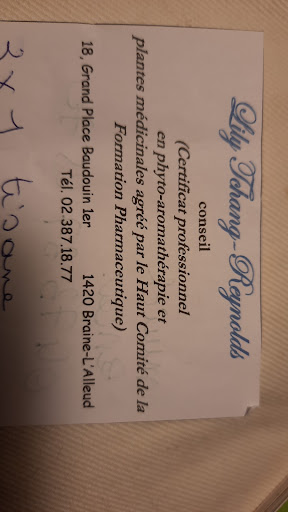 Lily Tchang-Reynolds
conseil
(Certificat professionnel
en phyto-aromathérapie et
plantes médicinales agréé par le Haut Comité de la
Formation Pharmaceutique)
18, Grand Place Baudouin 1er 1420 Braine-L'Alleud
Tél. 02.387.18.77
2 x 1 tisane